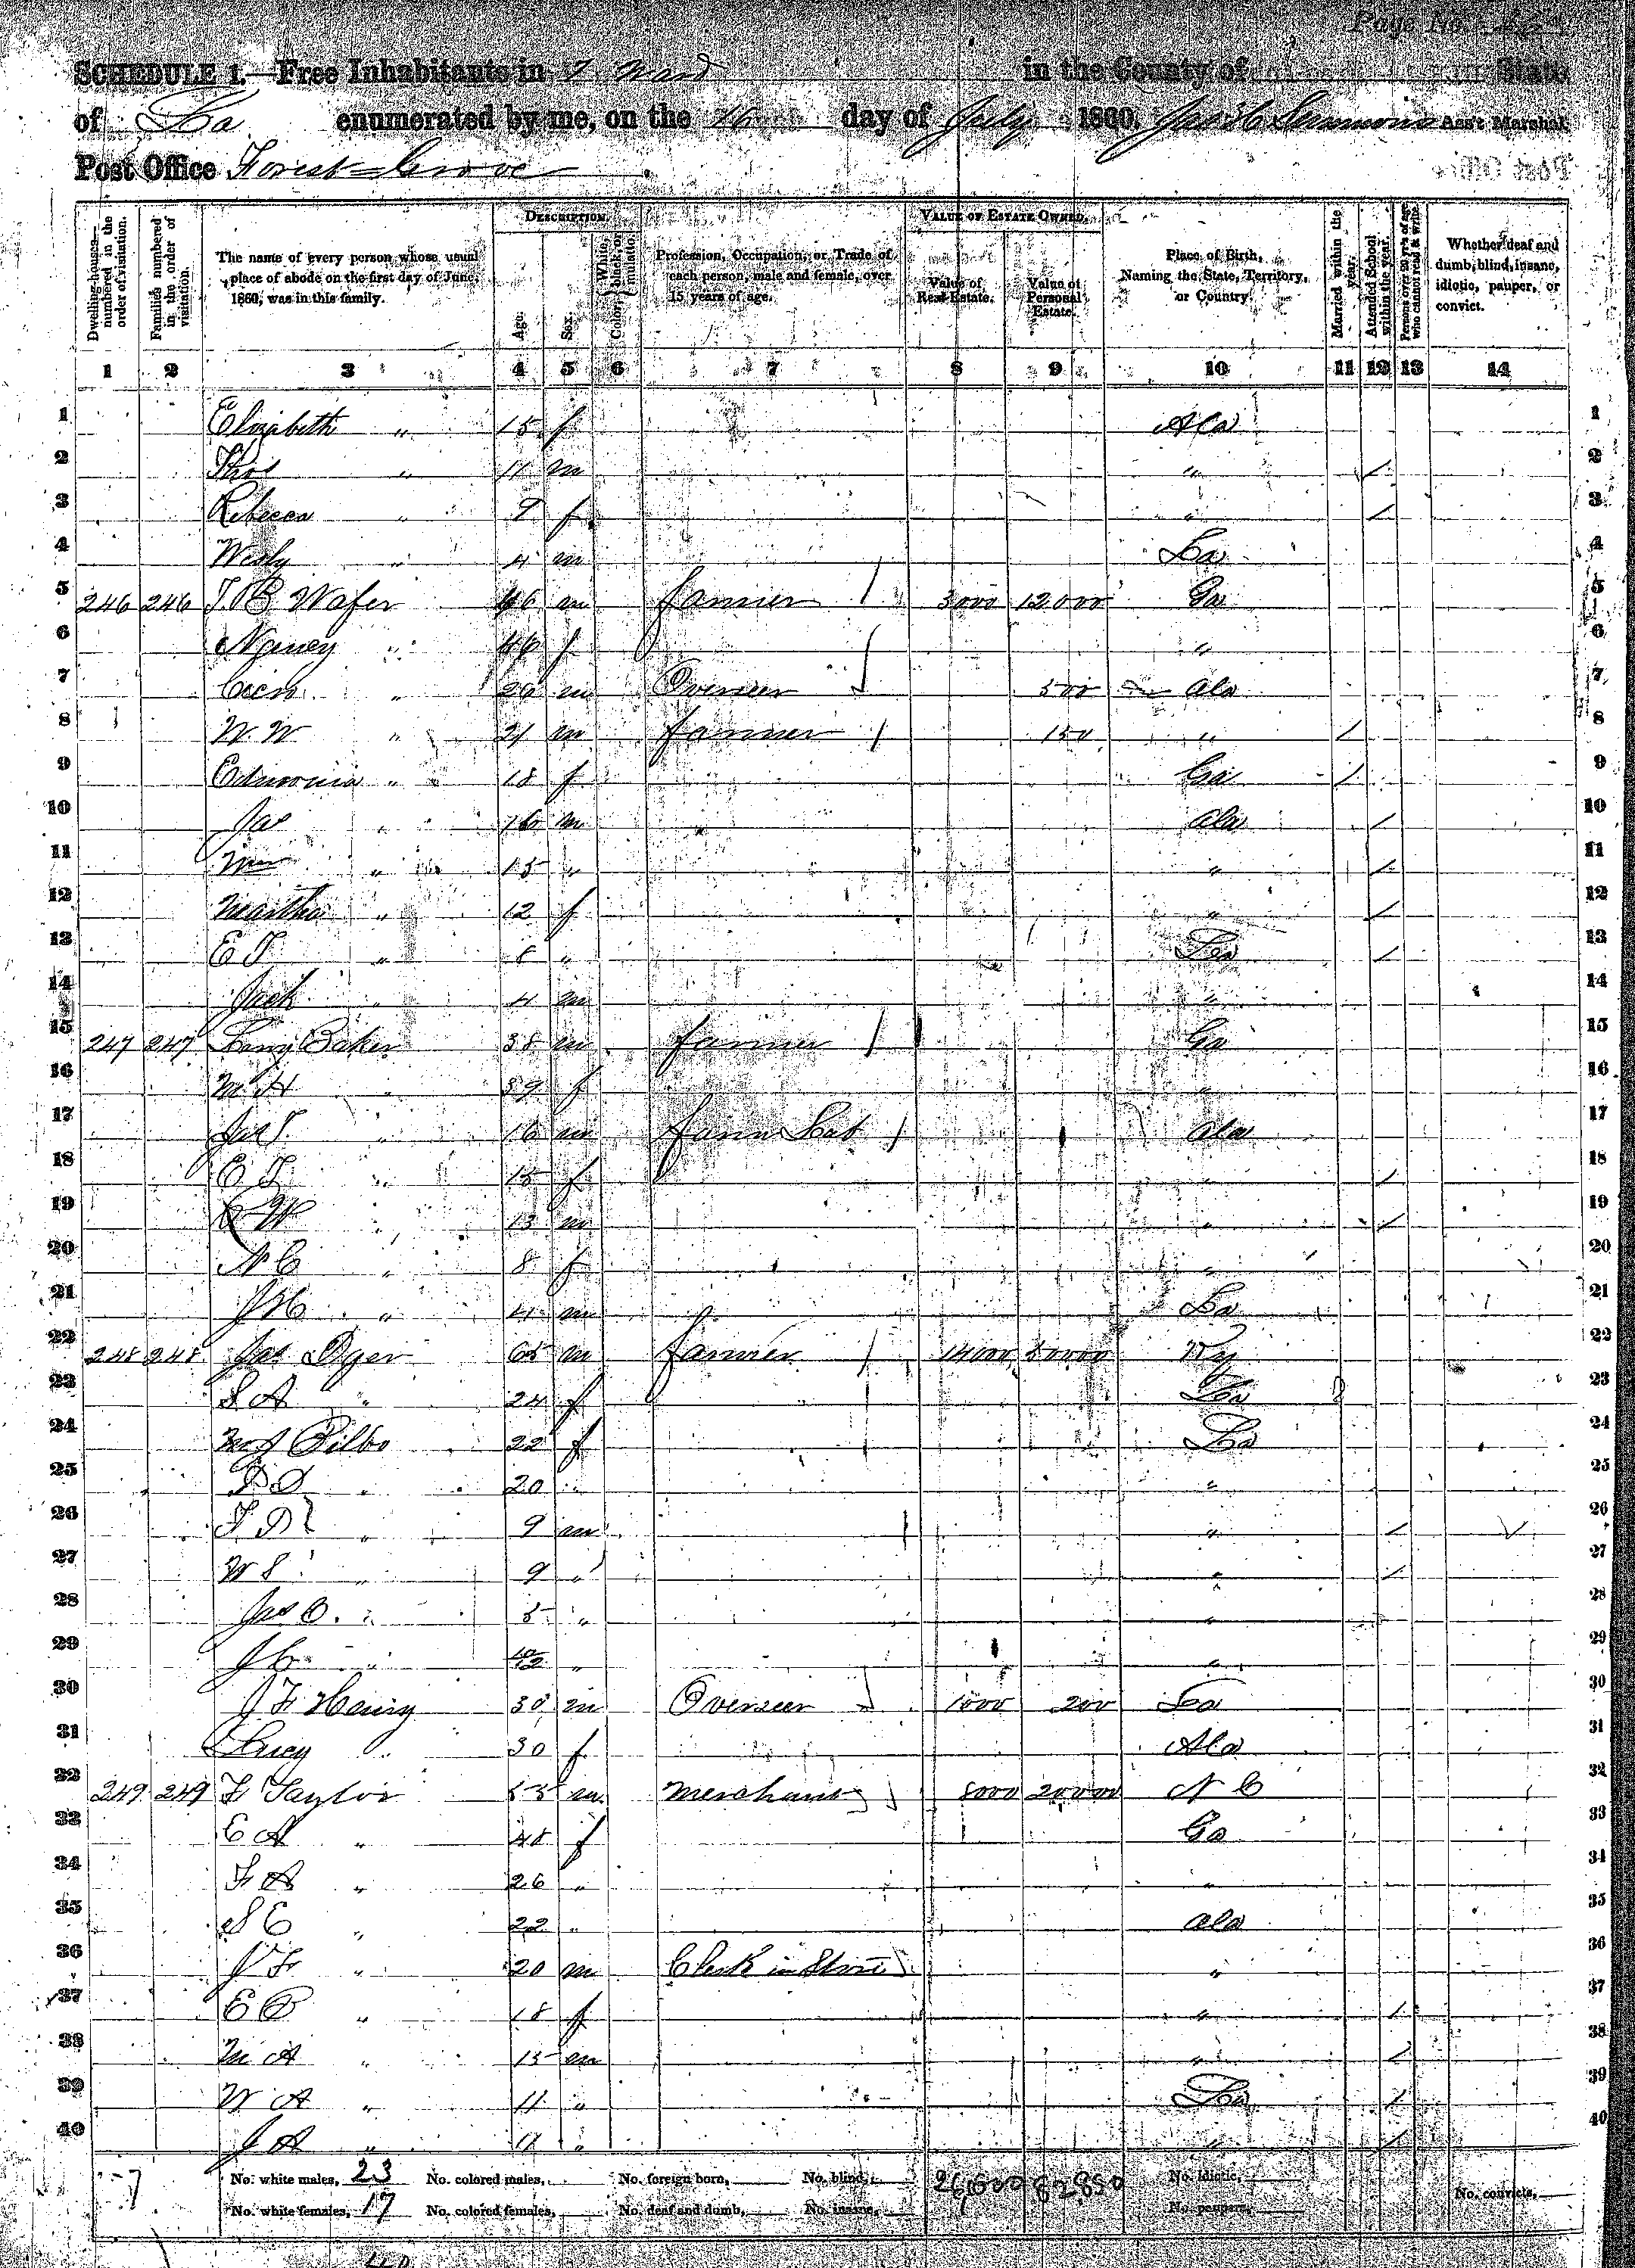 Page No.
SCHEDULE 1.—Free Inhabitants in 7 Ward in the County of State
of La enumerated by me, on the 16 day of July 1860. Jas H Simmons Ass't Marshal.
Post Office Forest Grove
Dwelling-houses— numbered in the order of visitation.
Families numbered in the order of visitation.
The name of every person whose usual place of abode on the first day of June, 1860, was in this family.
DESCRIPTION.
Age.
Sex.
Color, White, black, or mulatto.
Profession, Occupation, or Trade of each person, male and female, over 15 years of age.
VALUE OF ESTATE OWNED.
Value of Real Estate.
Value of Personal Estate.
Place of Birth, Naming the State, Territory, or Country.
Married within the year.
Attended School within the year.
Persons over 20 y'rs of age who cannot read & write.
Whether deaf and dumb, blind, insane, idiotic, pauper, or convict.
1 2 3 4 5 6 7 8 9 10 11 12 13 14
1 Elizabeth " 15 f Ala 1
2 Thos " 11 m " / 2
3 Rebecca " 9 f " / 3
4 Wesly " 4 m La 4
5 246 246 J. B Wafer 46 m farmer / 3000 12000 Ga 5
6 Nancy " 46 f " 6
7 " 26 m Overseer 500 Ala 7
8 W W " 21 m farmer / 150 " / 8
9 " 18 f Ga / 9
10 Jas " 16 m Ala / 10
11 Wm " 15 " " / 11
12 Martha " 12 f " / 12
13 E T " " La / 13
14 Jack " 4 m " 14
15 247 247 Baker 38 m farmer / Ga 15
16 M H " 39 f " 16
17 " 16 m farm Lab / Ala 17
18 E " 15 f / 18
19 W " 13 m " / 19
20 N C " 8 f " 20
21 J H " 4 m La 21
22 248 248 Jas Dyer 65 m farmer / 14000 50000 Ky 22
23 S A " 24 f La 23
24 Bilbo 22 f La 24
25 " 20 " " 25
26 " 9 m " / 26
27 W S " 9 " " / 27
28 Jas O. " 5 " " 28
29 J C " " " 29
30 J F Henry 30 m Overseer 1000 200 La 30
31 Lucy " 30 f Ala 31
32 249 249 F Taylor 55 m Merchant 8000 20000 N C 32
33 E A " 48 f Ga 33
34 F A " 26 " " 34
35 S E " 22 " Ala 35
36 J F " 20 m Clerk in Store " 36
37 E B " 18 f " / 37
38 M A " 15 m " / 38
39 W A " 11 " La / 39
40 J A " " " / 40
No. white males, 23 No. colored males, No. foreign born, No. blind, 26,000 82850 No. idiotic,
No. white females, 17 No. colored females, No. deaf and dumb, No. insane, No. paupers, No. convicts,
40